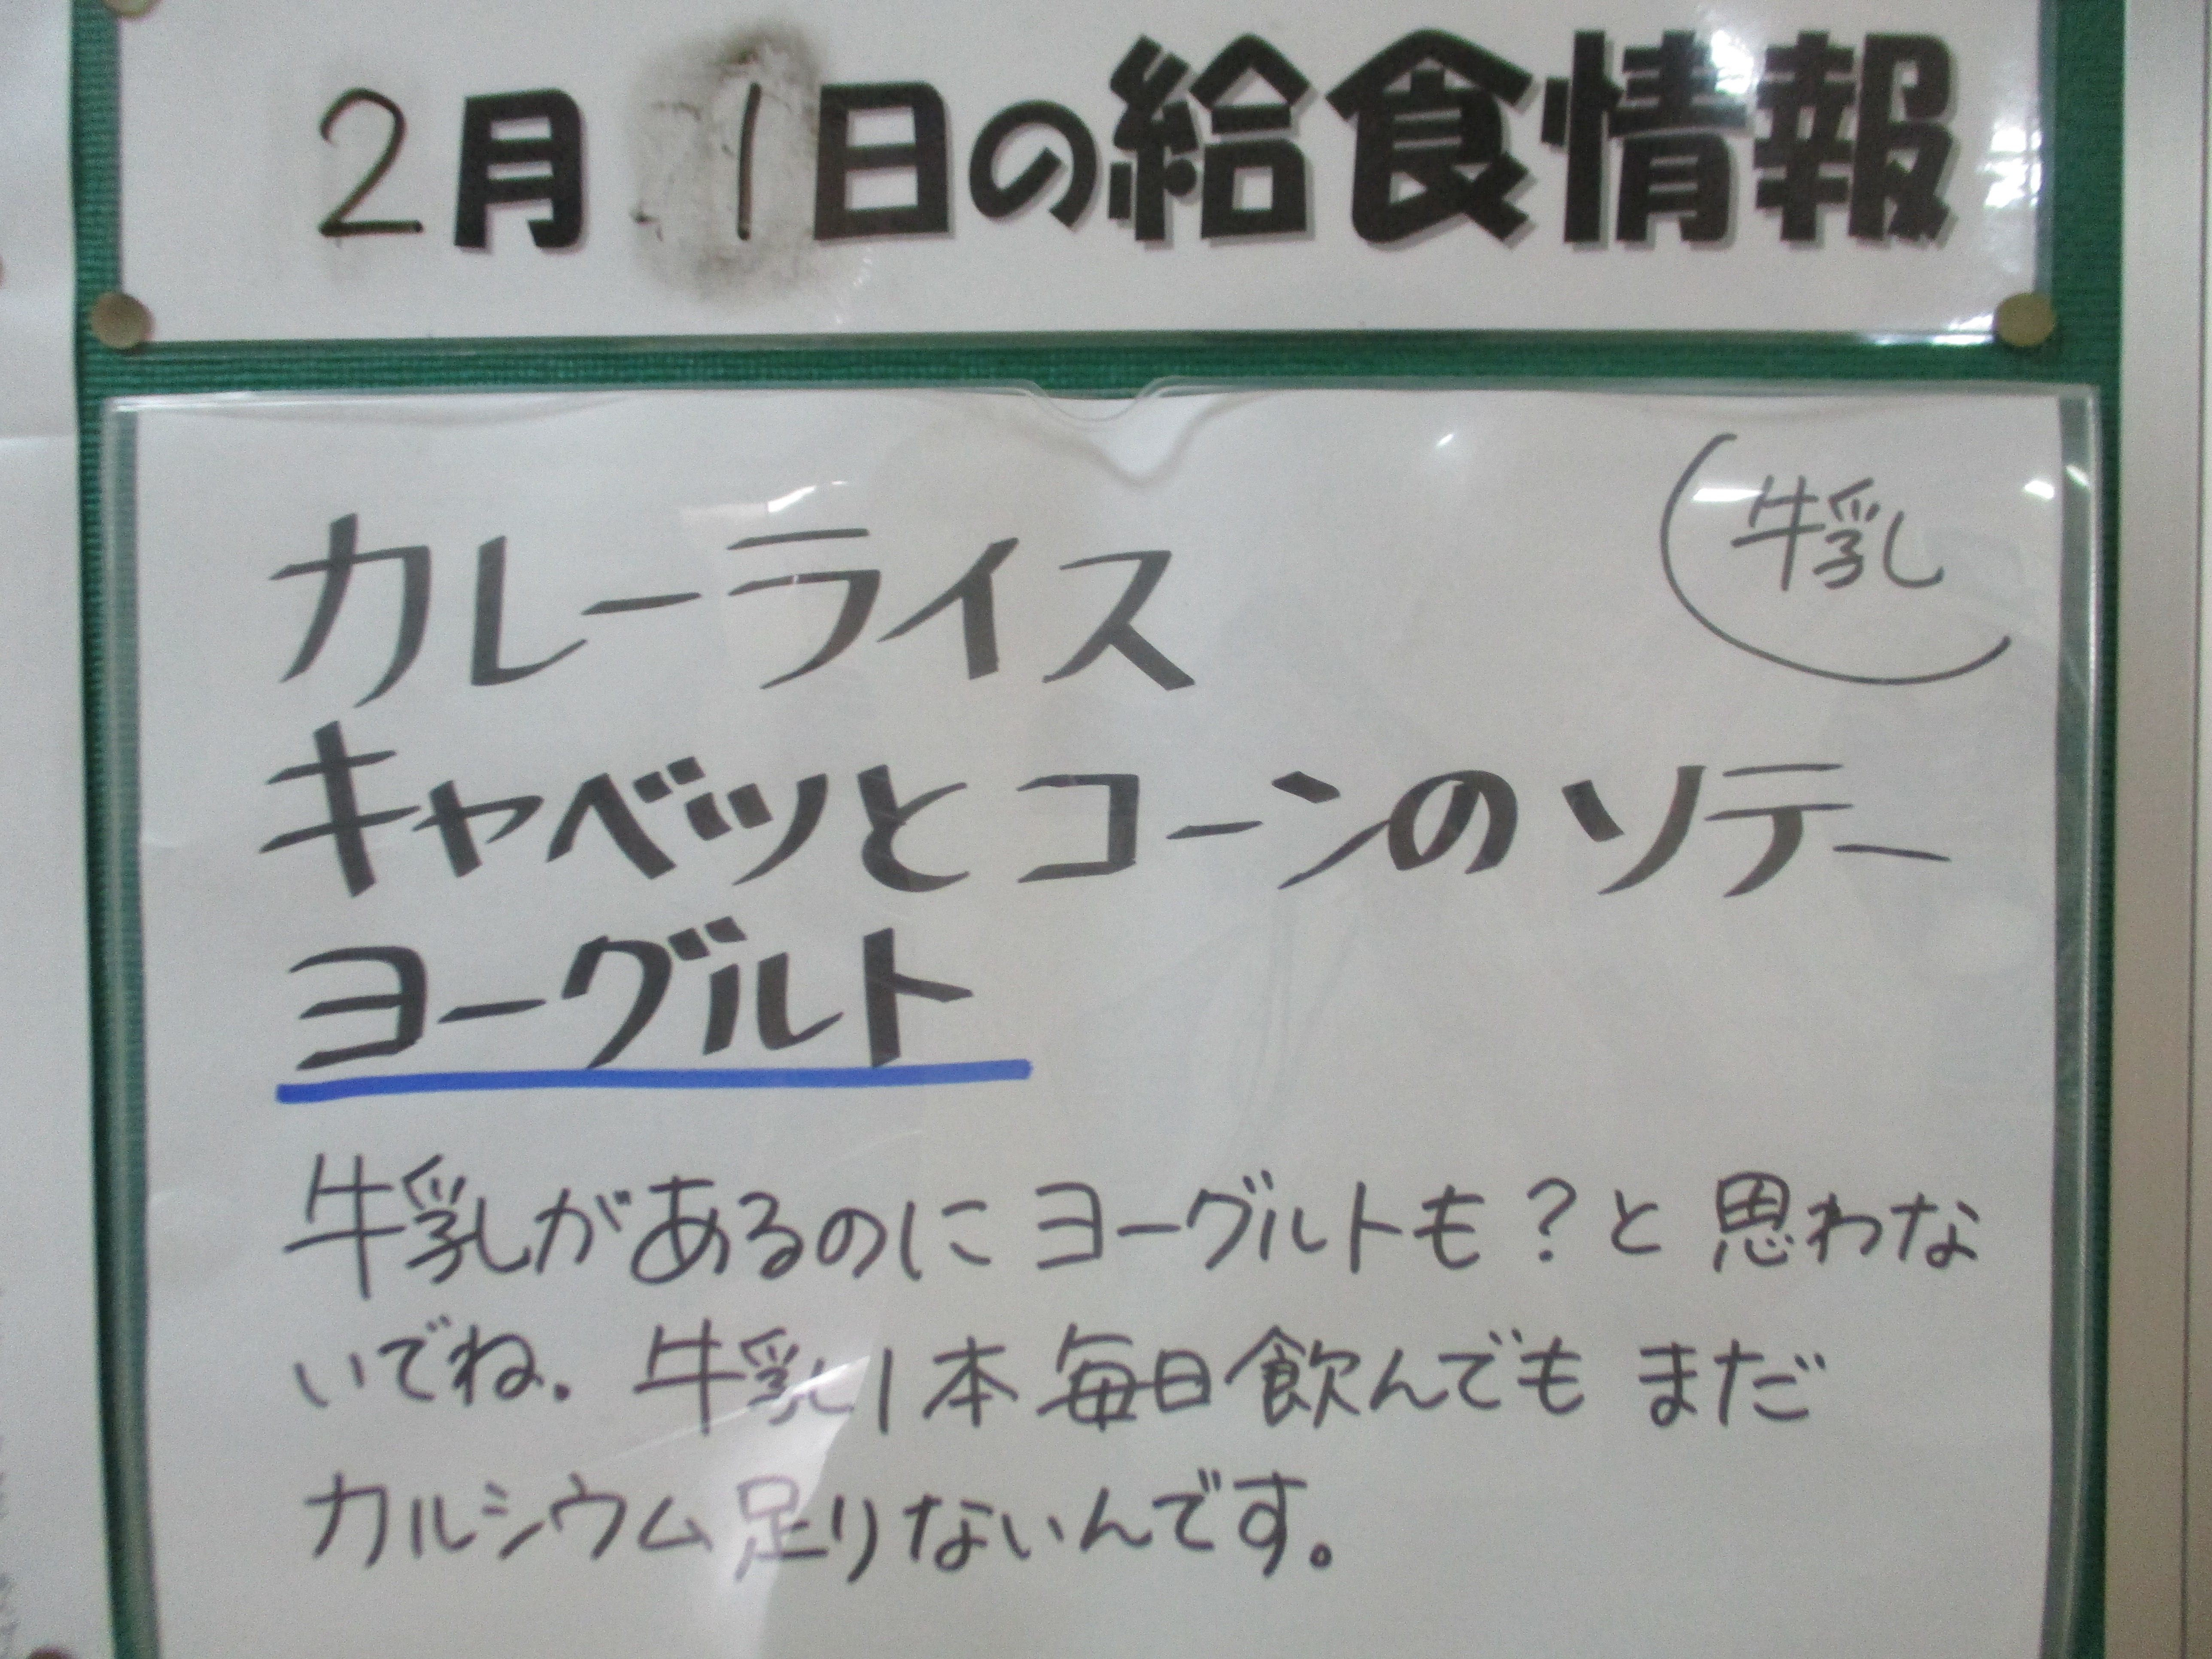 2月1日の給食情報
牛乳
カレーライス
キャベツとコーンのソテー
ヨーグルト
牛乳があるのにヨーグルトも?と思わな
いでね。牛乳1本毎日飲んでもまだ
カルシウム足りないんです。